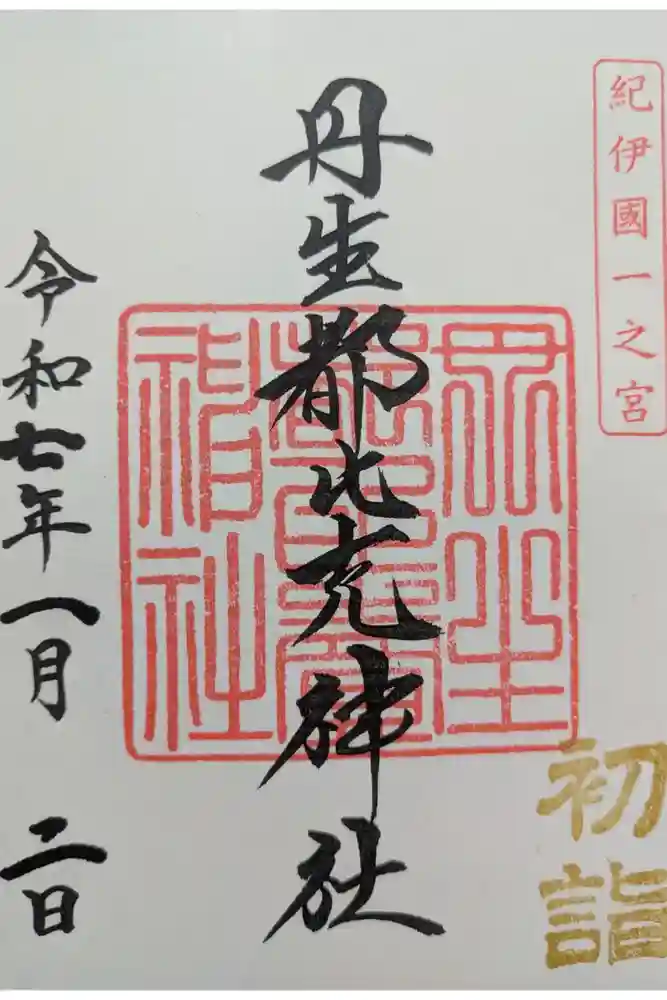 紀伊國一之宮
丹生都比売神社
丹生都比賣神社
初詣
令和七年一月二日